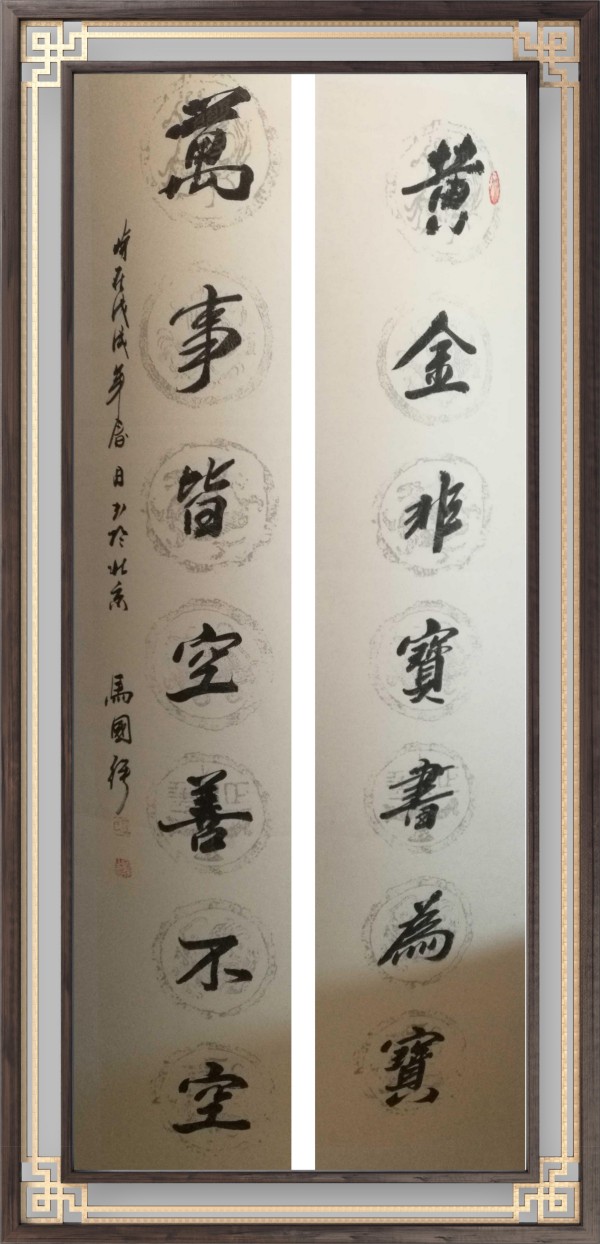 黄金非寶書為寶
萬事皆空善不空
時在戊戌年春日书於北京
馬國強